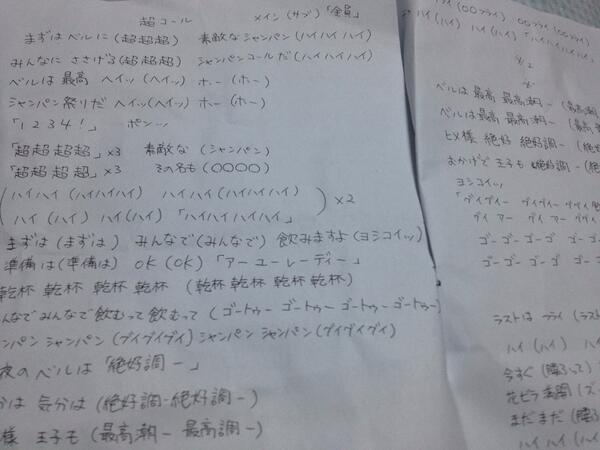 超コール メイン(サブ)「全員」
まずはベルに(超超超) 素敵なシャンパン(ハイハイハイ)
みんなにささげる(超超超) シャンパンコールだ(ハイハイハイ)
ベルは最高 ヘイッ(ヘイッ) ホー(ホー)
シャンパン祭りだ ヘイッ(ヘイッ) ホー(ホー)
「1234!」 ポンッ
「超超超超」×3 素敵な(シャンパン)
「超超超超」×3 その名も(〇〇〇〇)
(ハイハイ(ハイハイハイ) ハイハイ(ハイハイハイ)
ハイ(ハイ) ハイ(ハイ)「ハイハイハイハイ」)×2
まずは(まずは) みんなで(みんなで) 飲みますよ(ヨシコイッ)
準備は(準備は) OK(OK)「アーユーレーディー」
乾杯 乾杯 乾杯 乾杯 (乾杯 乾杯 乾杯 乾杯)
んなでみんなで飲むって飲むって(ゴートゥー ゴートゥー ゴートゥー ゴートゥー)
ンパン シャンパン(グイグイグイ) シャンパン シャンパン(グイグイグイ)
夜のベルは「絶好調ー」
分は 気分は(絶好調ー絶好調ー)
様 王子も(最高潮ー 最高調ー)
ハイ(〇〇フライ) 〇〇フライ(〇〇フライ)
ハイ(ハイ) ハイ(ハイ)「ハイハイハイハイ
×2
ベルは最高 最高潮ー(最高
ベルは最高 最高潮ー(最高
ヒメ様 絶好 絶好調ー(絶
おかげで 王子も 絶好調ー(絶
ヨシコイッ
「グイグイー グイグイー グイグイ
グイ アー グイ アー
ゴーゴーゴーゴ ゴーゴー
ゴーゴーゴーゴ ゴーゴー
ラストは フライ(ラスト
ハイ(ハイ) ハイ
今すぐ(踊って)
花ビラ 満開(ズ
まだまだ(踊
ハイ ハイ(ハイ